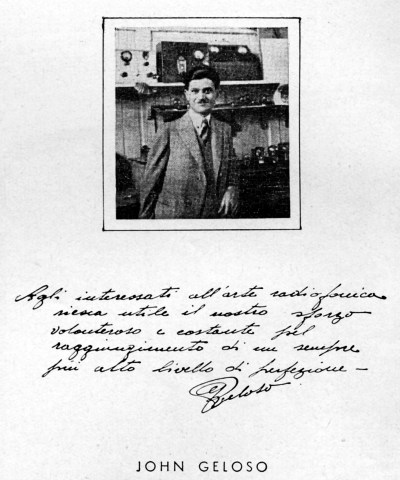 Agli interessati all'arte radiofonica
riesca utile il nostro sforzo
volonteroso e costante pel
raggiungimento di un sempre
più alto livello di perfezione —
Geloso
JOHN GELOSO